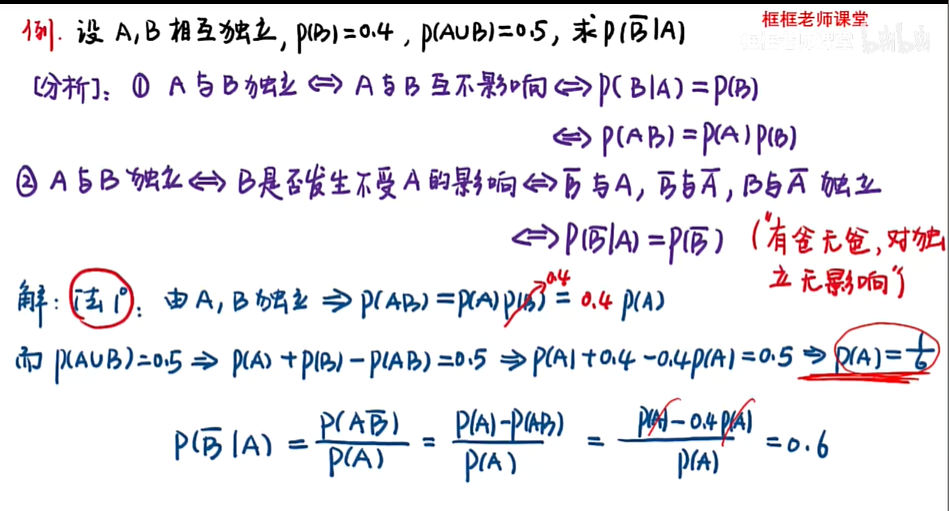 框框老师课堂
例. 设 A,B 相互独立, P(B)=0.4, P(A∪B)=0.5, 求 P(B̅|A)
[分析]: ① A 与 B 独立 ⇔ A 与 B 互不影响 ⇔ P(B|A)=P(B)
⇔ P(AB)=P(A)P(B)
② A 与 B 独立 ⇔ B 是否发生不受 A 的影响 ⇔ B̅ 与 A, B̅ 与 A̅, B 与 A̅ 独立
⇔ P(B̅|A)=P(B̅) ("有爸无爸, 对独
立无影响")
解: 法1°: 由 A,B 独立 ⇒ P(AB)=P(A)P(B)=0.4 P(A)
0.4
而 P(A∪B)=0.5 ⇒ P(A)+P(B)-P(AB)=0.5 ⇒ P(A)+0.4-0.4P(A)=0.5 ⇒ P(A)=1/6
P(B̅|A) = P(AB̅)/P(A) = (P(A)-P(AB))/P(A) = (P(A)-0.4P(A))/P(A) = 0.6